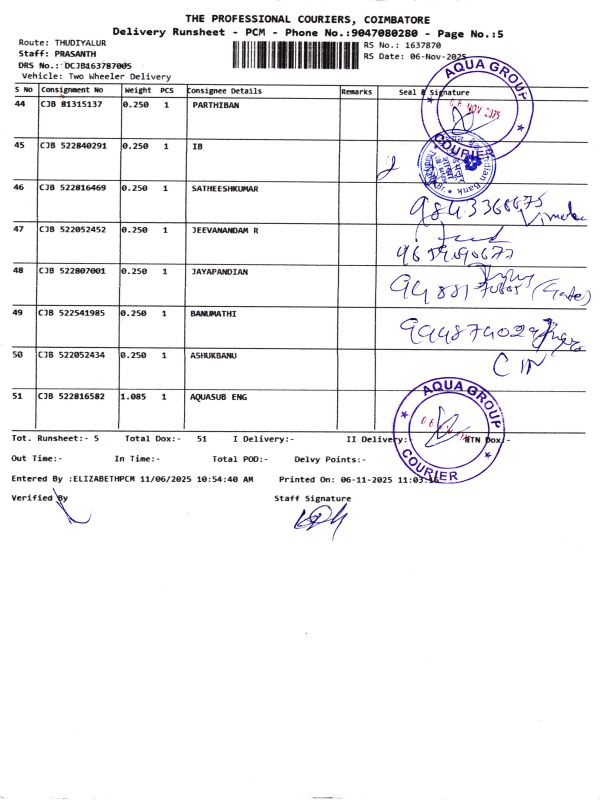 THE PROFESSIONAL COURIERS, COIMBATORE
Delivery Runsheet - PCM - Phone No.:9047080280 - Page No.:5
Route: THUDIYALUR
RS No.: 1637870
Staff: PRASANTH
RS Date: 06-Nov-2025
DRS No.: DCJB163787005
Vehicle: Two Wheeler Delivery
S No Consignment No Weight PCS Consignee Details Remarks Seal & Signature
44 CJB 81315137 0.250 1 PARTHIBAN
AQUA GROUP
06 NOV 2025
COURIER
45 CJB 522840291 0.250 1 IB
Indian Bank
46 CJB 522816469 0.250 1 SATHEESHKUMAR
47 CJB 522052452 0.250 1 JEEVANANDAM R
48 CJB 522807001 0.250 1 JAYAPANDIAN
49 CJB 522541985 0.250 1 BANUMATHI
50 CJB 522052434 0.250 1 ASHUKBANU
51 CJB 522816582 1.085 1 AQUASUB ENG
AQUA GROUP
COURIER
Tot. Runsheet:- 5 Total Dox:- 51 I Delivery:- II Delivery:- NTN Dox:-
Out Time:- In Time:- Total POD:- Delvy Points:-
Entered By :ELIZABETHPCM 11/06/2025 10:54:40 AM Printed On: 06-11-2025 11:03:
Verified By Staff Signature